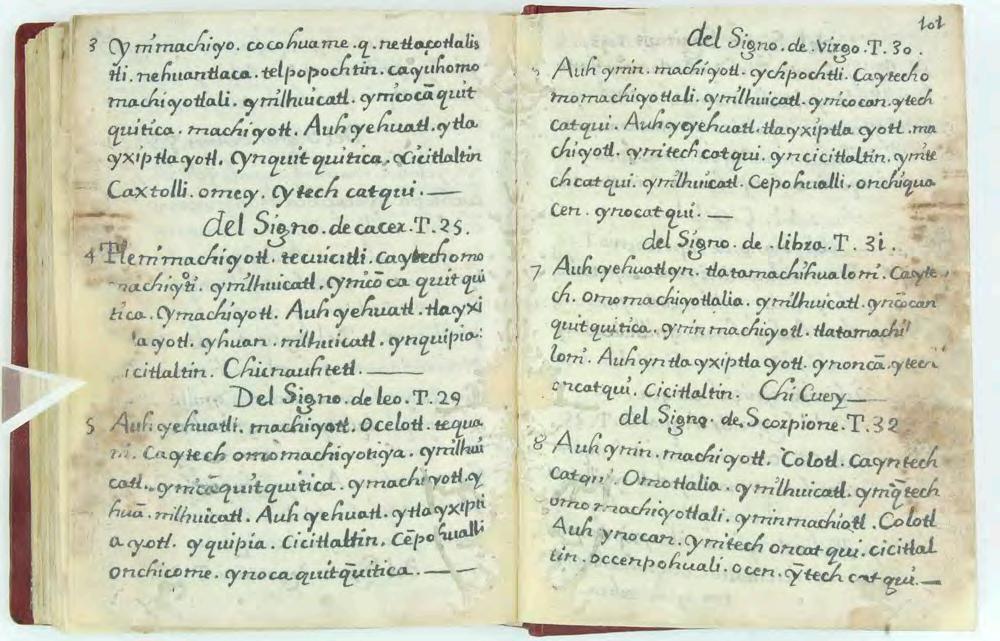 3 Ynin machiyo. cocohuame. q. netlaçotlalis
tli. nehuantlaca. telpopochtin. ca yuhomo
machiyotlali. yn ilhuicatl. ynicocā quit
quitica. machiyotl. Auh yehuatl. ytla
yxiptlayotl. Ynquitquitica. Cicitlaltin
Caxtolli. omey. Ytech catqui. —
del Signo. de cacer. T. 25.
4 machiyotl. tecuicitli. ca ytech omo
ylhuicatl. Ynicō ca quitqui
tica. Ymachiyotl. Auh yehuatl. tlayxi
ayotl. yhuan. milhuicatl. ynquipia:
icitlaltin. Chicnauhtetl. —
Del Signo. de leo. T. 29
5 Auh yehuatli. machiyotl. Ocelotl. tequa
ni. Ca ytech omomachiyotiya. ynilhui
catl. ynicāquitquitica. ymachiyotl. y
huā. milhuicatl. Auh yehuatl. ytlayxipti
ayotl. yquipia. Cicitlaltin. Cēpohualli
onchicome. ynoca quitq̄uitica. —
101
del Signo. de. Virgo. T. 30.
Auh ynin. machiyotl. ychpochtli. Ca ytech o
momachiyotlali. ynilhuicatl. ynicocan. ytech
catqui. Auh yeyehuatl. tlayxiptla yotl. ma
chiyotl. ynitech catqui. yncicitlaltin. ynite
ch catqui. ynilhuicatl. Cepohualli. onchiqua
cen. ynocatqui. —
del Signo. de. libra. T. 31.
7 Auh yehuatlyn. tlatamachihualoni. Ca yte
ch. Omomachiyotlalia. ynilhuicatl. ynicōcan
quitquitica. yninmachiyotl. tlatamachi
loni. Auh yn tlayxiptlayotl. ynoncā. ytech
oncatqui. Cicitlaltin. Chi Cuey —
del Signo. de. Scorpione. T. 32
8 Auh ynin. machiyotl. Colotl. Ca yntech
catqui. Omotlalia. ynilhuicatl. yniq̄tech
omomachiyotlali. yninmachiotl. Colotl
Auh ynocan. ynitech oncatqui. cicitlal
tin. occenpohuali. ocen. ȳtech catqui. —